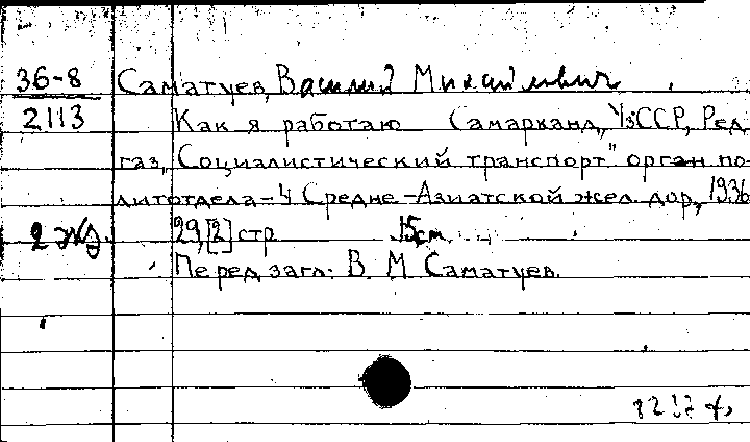 36-8 Саматуев, Василий Михайлович
2113 Как я работаю Самарканд, УзССР, Ред.
газ. „Социалистический транспорт" орган по-
литотдела-4 Средне-Азиатской жел. дор., 1936
2 экз. 29,[2] стр 15cm.
Перед загл: В. М. Саматуев.